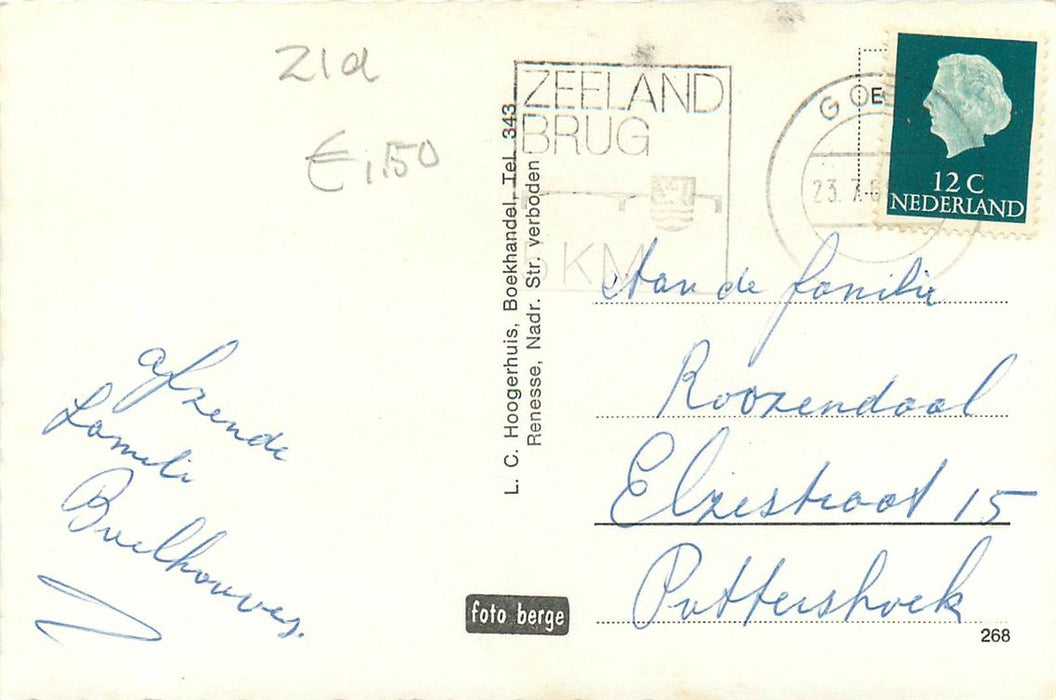 Z1d
€ 1,50
ZEELAND
BRUG
5 KM
GOES
23. 7.6
12 C
NEDERLAND
L. C. Hoogerhuis, Boekhandel, Tel. 343
Renesse, Nadr. Str. verboden
Aan de familie
Roozendaal
Elzestraat 15
Puttershoek
afzende
Familie
foto berge
268